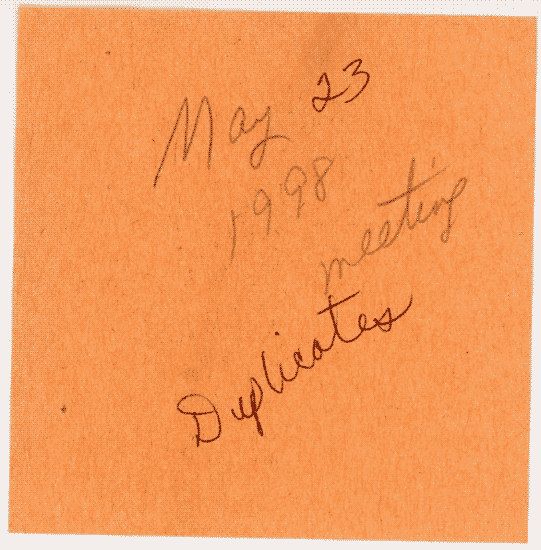 May 23
1998
meeting
Duplicates